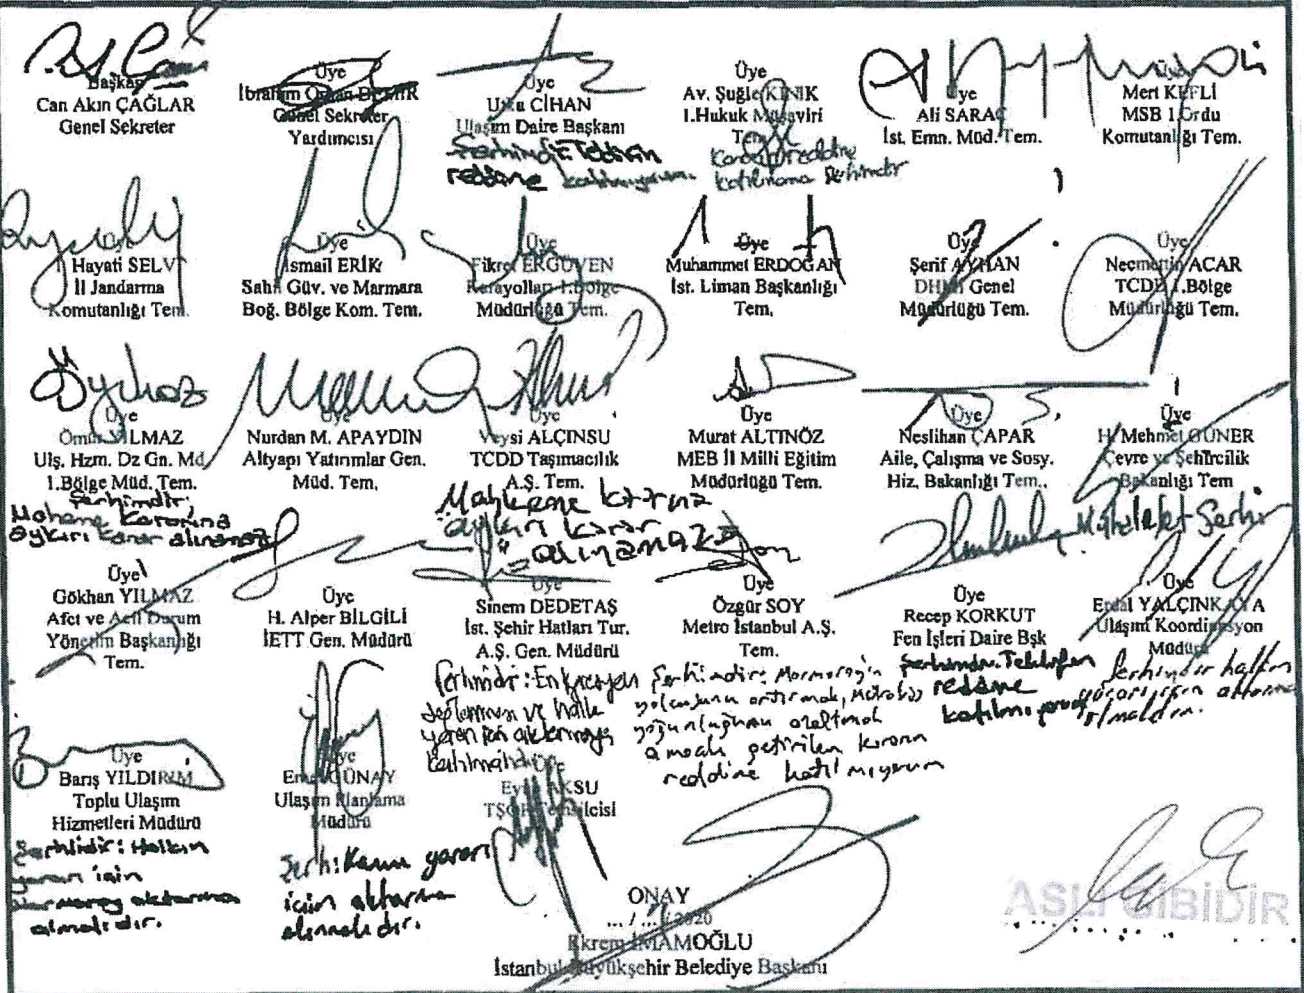 Başkan
Can Akın ÇAĞLAR
Genel Sekreter
Üye
İbrahim Orhan DEMİR
Genel Sekreter
Yardımcısı
Üye
Utku CİHAN
Ulaşım Daire Başkanı
Şerhimdir. Teklifin
reddine katılmıyorum.
Üye
Av. Şuğle KINIK
1.Hukuk Müşaviri
Tem.
Kararın reddine
katılmama şerhimdir
Üye
Ali SARAÇ
İst. Emn. Müd. Tem.
Üye
Mert KEFLİ
MSB 1.Ordu
Komutanlığı Tem.
Üye
Hayati SELVİ
İl Jandarma
Komutanlığı Tem.
Üye
İsmail ERİK
Sahil Güv. ve Marmara
Boğ. Bölge Kom. Tem.
Üye
Fikret ERGÜVEN
Karayolları 1.Bölge
Müdürlüğü Tem.
Üye
Muhammet ERDOĞAN
İst. Liman Başkanlığı
Tem.
Üye
Şerif AYHAN
DHMİ Genel
Müdürlüğü Tem.
Üye
Necmettin ACAR
TCDD 1.Bölge
Müdürlüğü Tem.
Üye
Ömür YILMAZ
Ulş. Hzm. Dz Gn. Md
1.Bölge Müd. Tem.
Şerhimdir;
Mahkeme Kararına
aykırı karar alınamaz
Üye
Nurdan M. APAYDIN
Altyapı Yatırımlar Gen.
Müd. Tem.
Üye
Veysi ALÇINSU
TCDD Taşımacılık
A.Ş. Tem.
Mahkeme kararına
aykırı karar
alınamaz
Üye
Murat ALTINÖZ
MEB İl Milli Eğitim
Müdürlüğü Tem.
Üye
Neslihan ÇAPAR
Aile, Çalışma ve Sosy.
Hiz. Bakanlığı Tem..
Üye
H. Mehmet GÜNER
Çevre ve Şehircilik
Bakanlığı Tem
Muhalefet Şerhi
Üye
Gökhan YILMAZ
Afet ve Acil Durum
Yönetim Başkanlığı
Tem.
Üye
H. Alper BİLGİLİ
İETT Gen. Müdürü
Üye
Sinem DEDETAŞ
İst. Şehir Hatları Tur.
A.Ş. Gen. Müdürü
Şerhimdir: Entegrasyon
ve halk
yararı için aktarmaya
katılmalıdır
Üye
Özgür SOY
Metro İstanbul A.Ş.
Tem.
Şerhimdir; Marmaray'ın
yolcusunu artırmak, Metrobüs
yoğunluğunu azaltmak
amacılı getirilen kararın
reddine katılmıyorum
Üye
Recep KORKUT
Fen İşleri Daire Bşk
Şerhimdir. Teklifin
reddine
katılmıyorum
Üye
Erdal YALÇINKAYA
Ulaşım Koordinasyon
Müdürü
Şerhimdir halkın
yararı için aktarma
olmalıdır.
Üye
Barış YILDIRIM
Toplu Ulaşım
Hizmetleri Müdürü
Şerhlidir: Halkın
yararı için
Marmaray aktarma
olmalıdır.
Üye
GÜNAY
Ulaşım Planlama
Müdürü
Şerh: Kamu yararı
için aktarma
alınmalıdır.
Üye
AKSU
TŞOF Temsilcisi
ONAY
... / ... /2020
Ekrem İMAMOĞLU
İstanbul Büyükşehir Belediye Başkanı
ASLI GİBİDİR